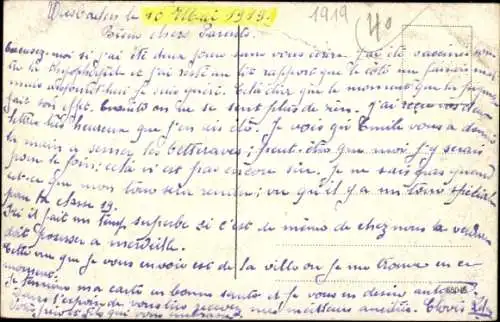 Wiesbaden le 10 Mai 1919. 1919 40
Biens chers Parents.
Excusez-moi si j'ai été deux jours sans vous écrire. J'ai été vacciné
de la typhoïde et j'ai resté au lit rapport que le côté me faisait mal
mais aujourd'hui je suis guéri. Cela n'est que le moment que la piqure
fait son effet. Ensuite on ne se sent plus de rien. J'ai reçu vos deux
lettres très heureux que j'en ai été. Je vois qu'Emile vous a donné
la main a semer les betteraves; peut-être que moi j'y serais
pour le foin; cela n'est pas encore sûr. Je ne sais pas quand
est-ce que mon tour sera rendu; vu qu'il y a un tour spécial
pour la classe 19.
Ici il fait un temps superbe si c'est de même de chez nous la verdure
doit pousser a merveille.
Cette vue que je vous envoie est de la ville ou je me trouve en ce
moment.
Je termine ma carte en bonne santé et je vous en désire autant.
Dans l'espoir de vous lire recevez mes meilleures amitiés. Clovis
Votre fils qui vous embrasse